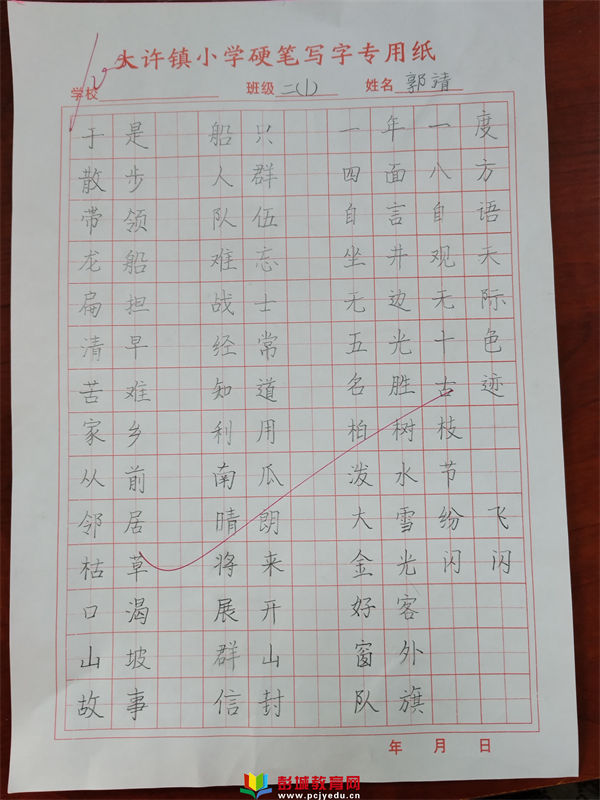 大许镇小学硬笔写字专用纸
学校 班级 二(1) 姓名 郭靖
于是 船只 一年一度
散步 人群 四面八方
带领 队伍 自言自语
龙船 难忘 坐井观天
扁担 战士 无边无际
清早 经常 五光十色
苦难 知道 名胜古迹
家乡 利用 柏树枝
从前 南瓜 泼水节
邻居 晴朗 大雪纷飞
枯草 将来 金光闪闪
口渴 展开 好客
山坡 群山 窗外
故事 信封 队旗
年 月 日
彭城教育网
www.pcjyedu.cn